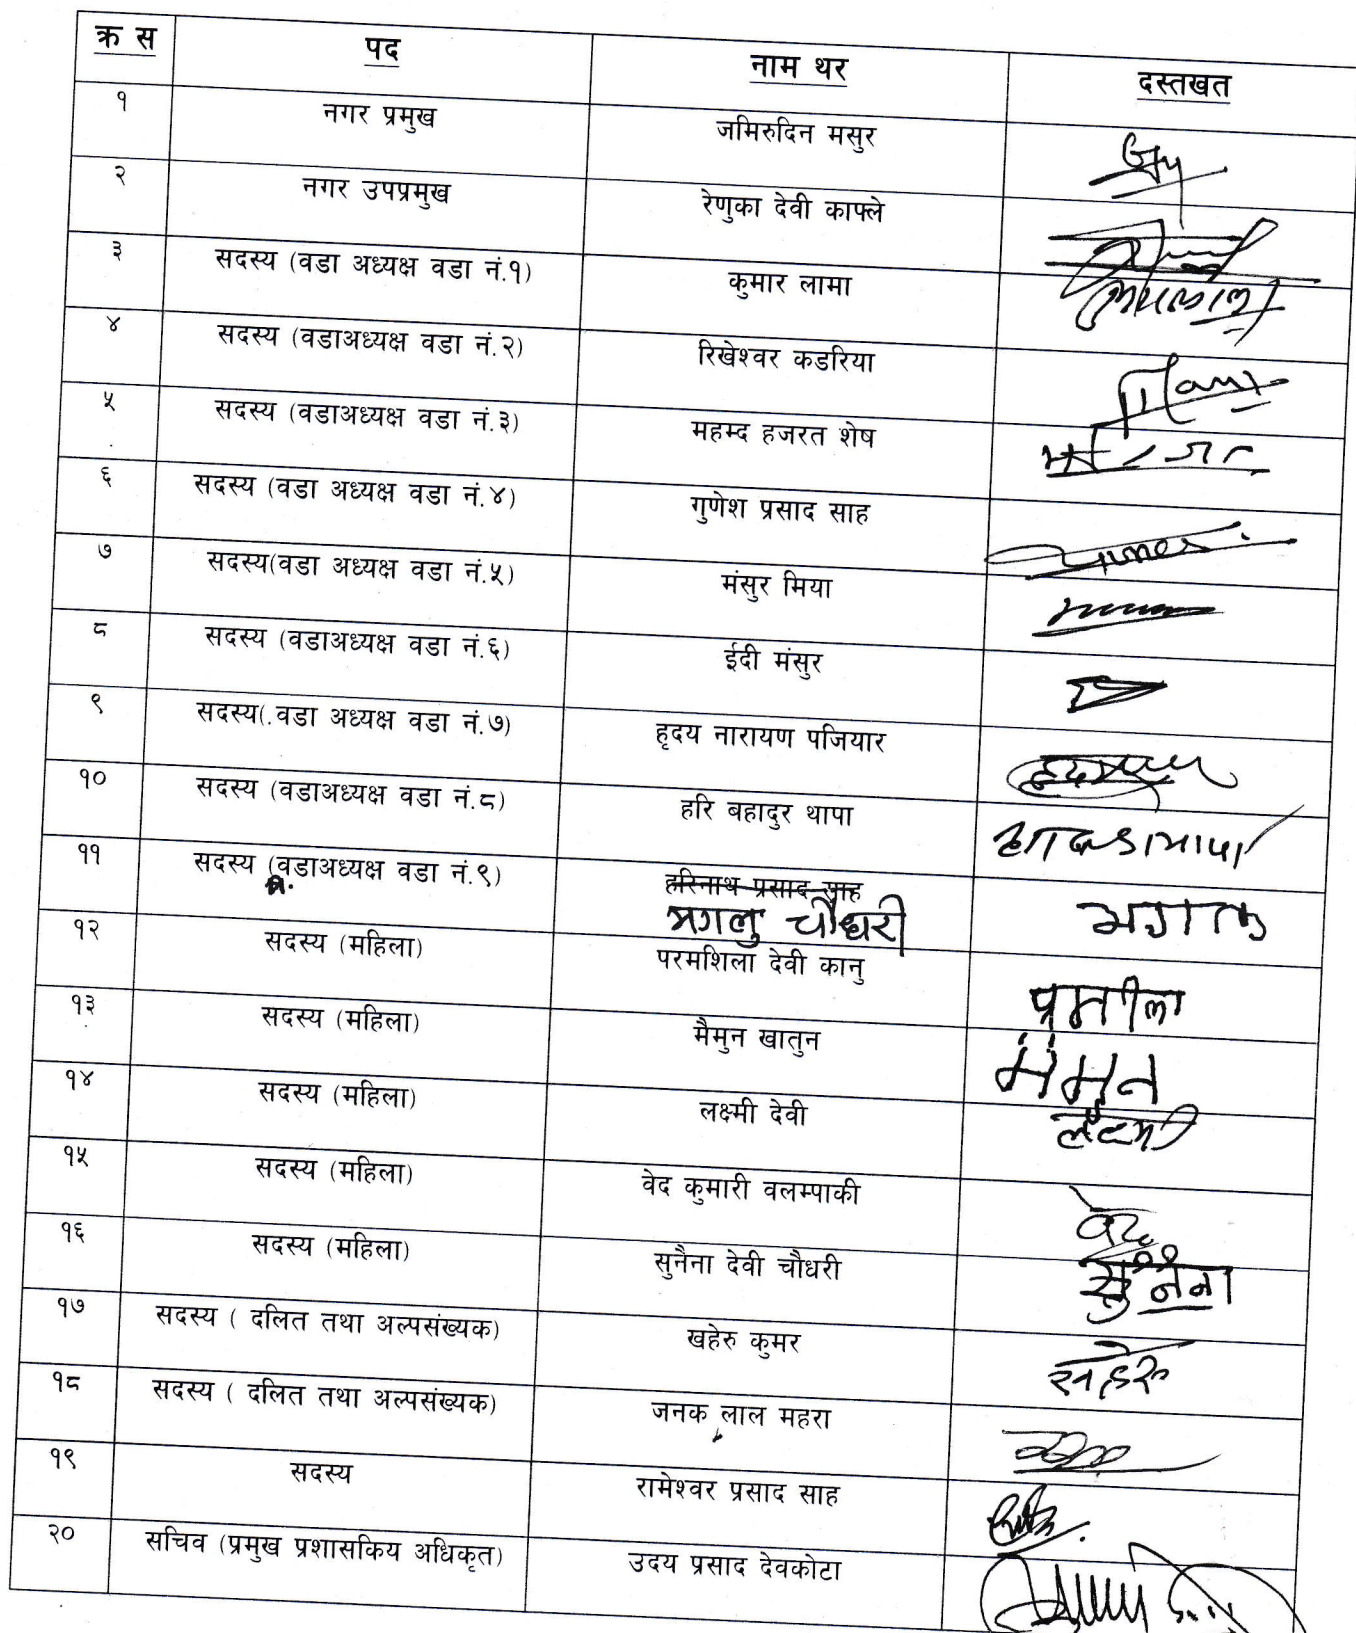 क्र स पद नाम थर दस्तखत
१ नगर प्रमुख जमिरुदिन मसुर
२ नगर उपप्रमुख रेणुका देवी काफ्ले
३ सदस्य (वडा अध्यक्ष वडा नं.१) कुमार लामा
४ सदस्य (वडाअध्यक्ष वडा नं.२) रिखेश्वर कडरिया
५ सदस्य (वडाअध्यक्ष वडा नं.३) महम्द हजरत शेष
६ सदस्य (वडा अध्यक्ष वडा नं.४) गुणेश प्रसाद साह
७ सदस्य(वडा अध्यक्ष वडा नं.५) मंसुर मिया
८ सदस्य (वडाअध्यक्ष वडा नं.६) ईदी मंसुर
९ सदस्य(.वडा अध्यक्ष वडा नं.७) हृदय नारायण पजियार
१० सदस्य (वडाअध्यक्ष वडा नं.८) हरि बहादुर थापा
११ सदस्य (वडाअध्यक्ष वडा नं.९) हरिनाथ प्रसाद साह
मगलु चौधरी
१२ सदस्य (महिला) परमशिला देवी कानु
१३ सदस्य (महिला) मैमुन खातुन
१४ सदस्य (महिला) लक्ष्मी देवी लक्ष्मी
१५ सदस्य (महिला) वेद कुमारी वलम्पाकी वेद
१६ सदस्य (महिला) सुनैना देवी चौधरी
१७ सदस्य ( दलित तथा अल्पसंख्यक) खहेरु कुमर
१८ सदस्य ( दलित तथा अल्पसंख्यक) जनक लाल महरा
१९ सदस्य रामेश्वर प्रसाद साह
२० सचिव (प्रमुख प्रशासकिय अधिकृत) उदय प्रसाद देवकोटा